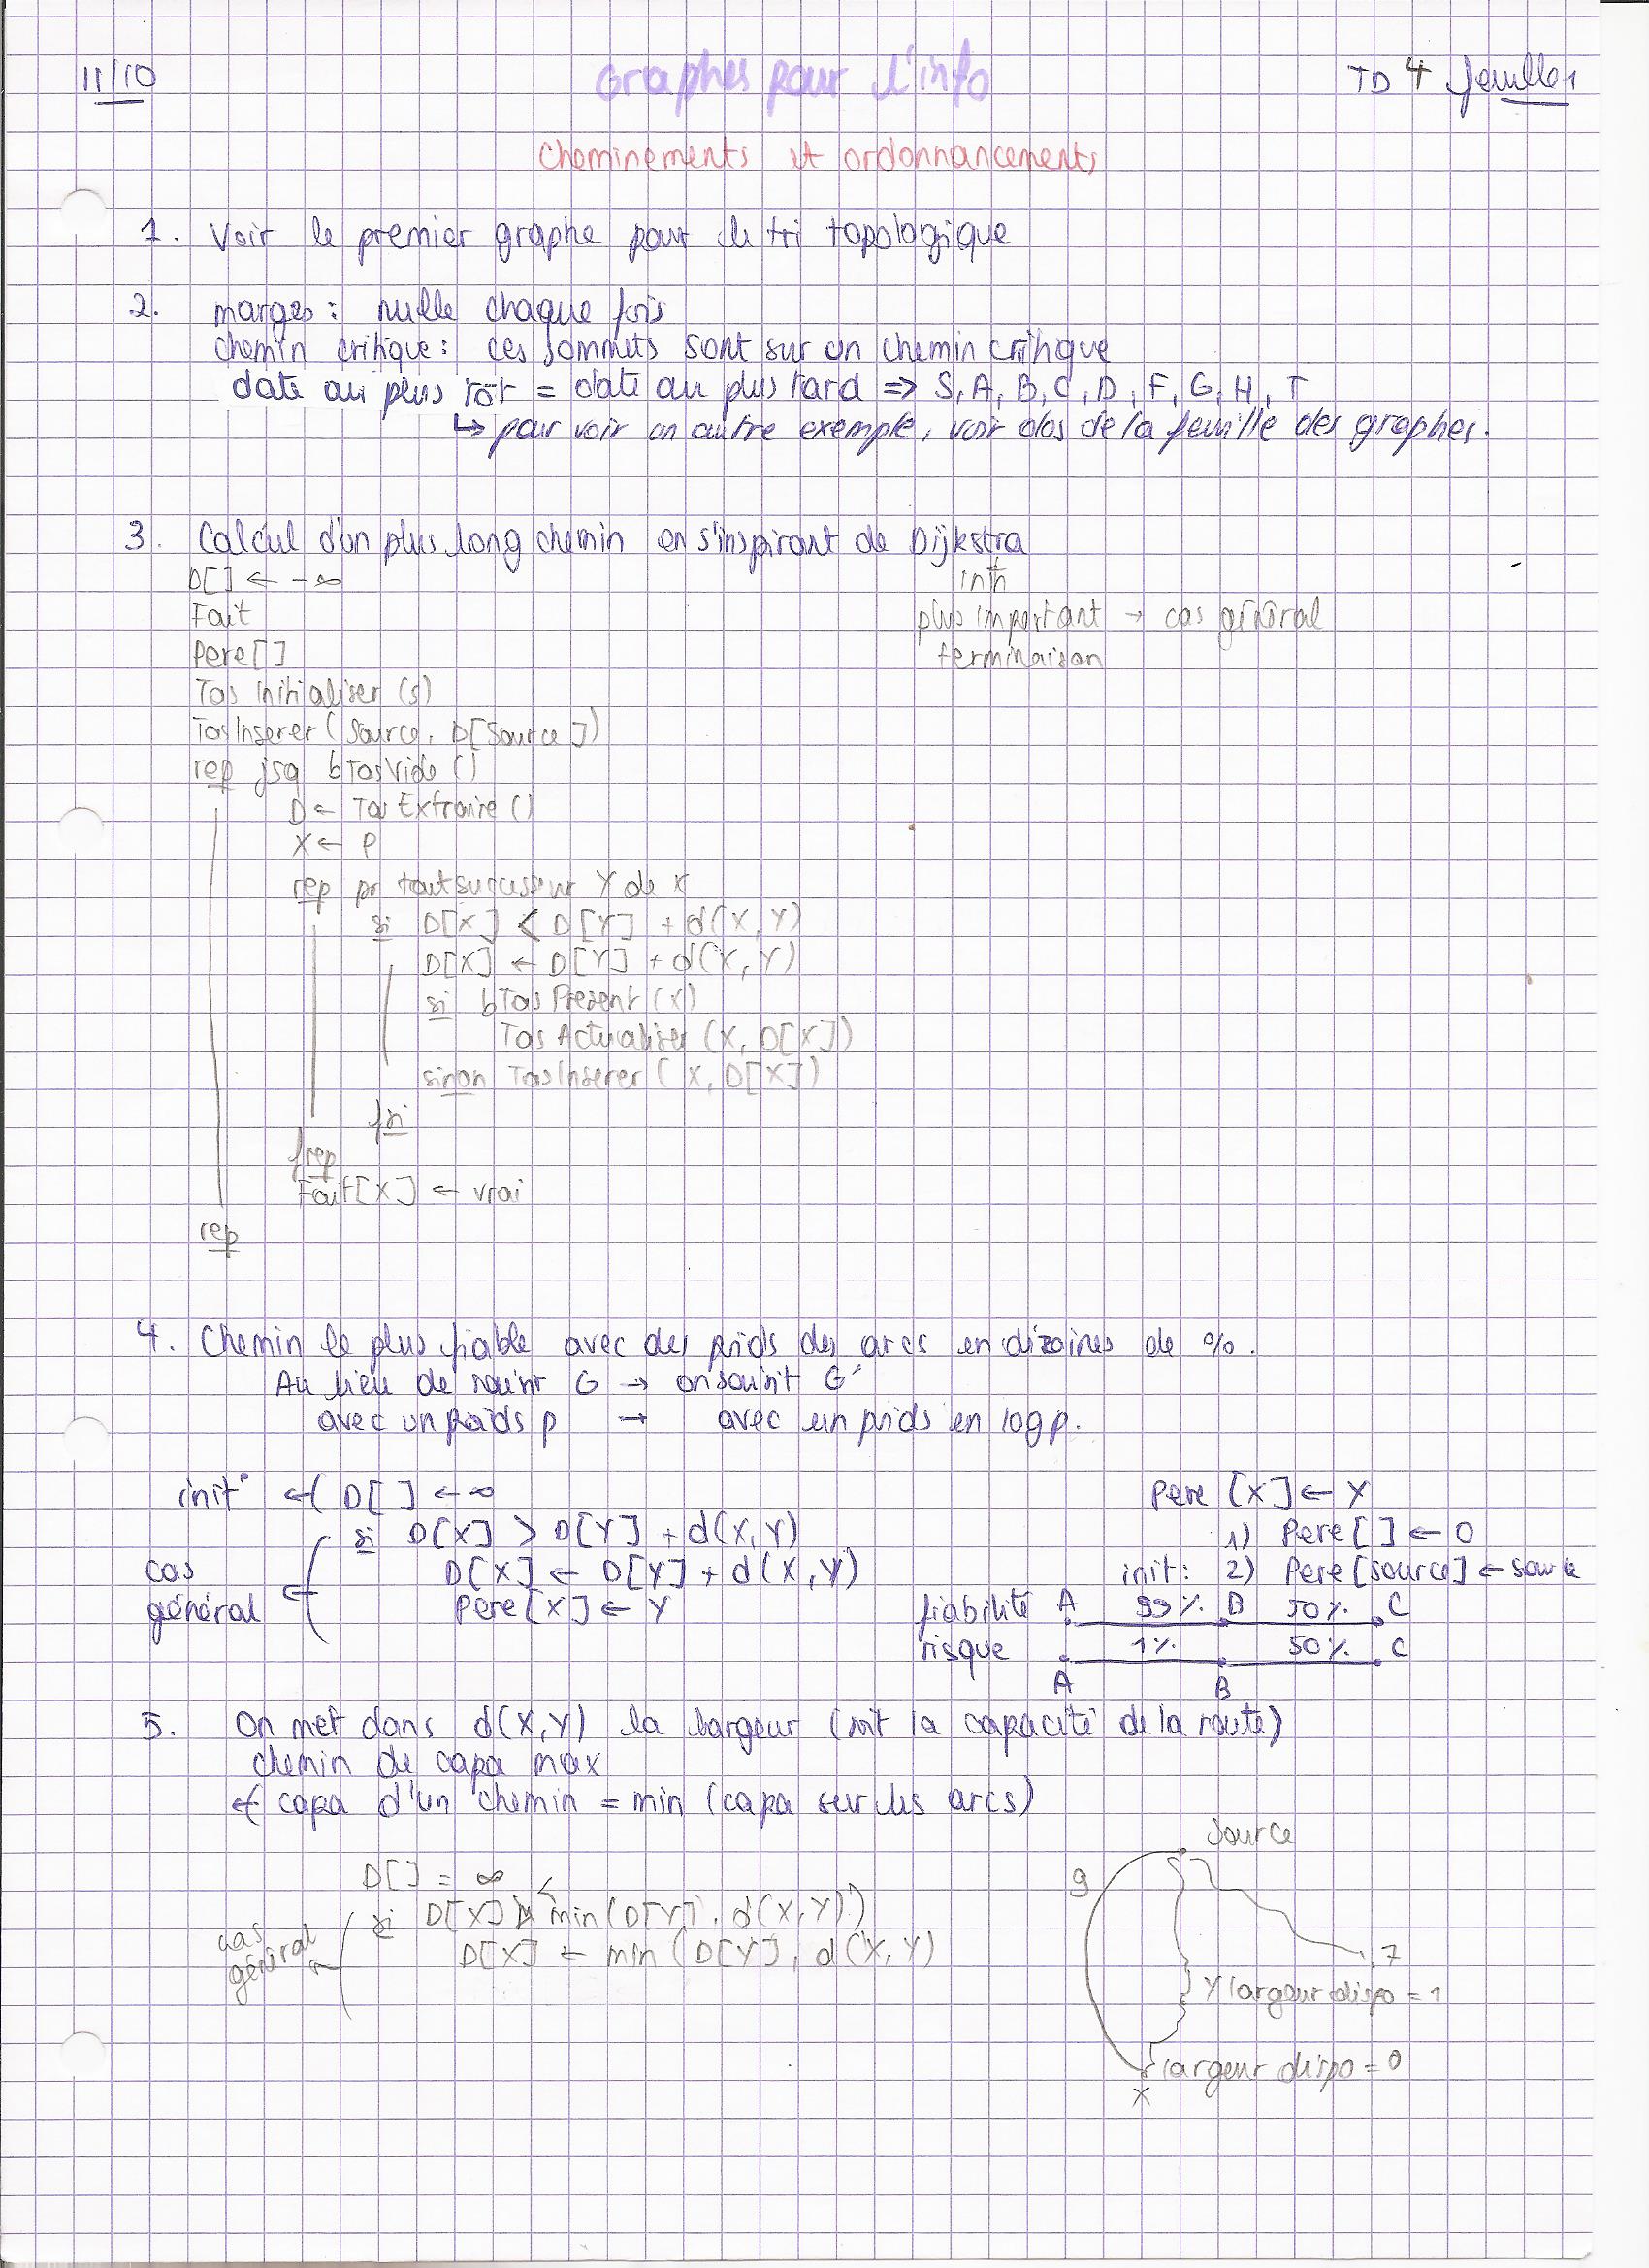 11/10
Graphes pour l'info
TD 4 feuille 1
Cheminements et ordonnancements
1. Voir le premier graphe pour le tri topologique
2. marges : nulle chaque fois
chemin critique : ces sommets sont sur un chemin critique
date au plus tôt = date au plus tard => S, A, B, C, D, F, G, H, T
↳ pour voir un autre exemple, voir dos de la feuille des graphes.
3. Calcul d'un plus long chemin en s'inspirant de Dijkstra
D[] ← -∞
init
Fait
plus important → cas général
Pere[]
terminaison
Tas initialiser (s)
TasInserer (Source, D[Source])
rep jsq bTasVide ()
D ← Tas Extraire ()
X ← P
rep pr tout successeur Y de X
si D[X] < D[Y] + d(X,Y)
D[X] ← D[Y] + d(X,Y)
si bTas Present (X)
Tas Actualiser (X, D[X])
sinon TasInserer (X, D[X])
fsi
frep
Fait[X] ← vrai
rep
4. Chemin le plus fiable avec des poids des arcs en dizaines de %.
Au lieu de G → G'
avec un poids p → avec un poids en log p.
init° ← D[] ← -∞
Pere [X] ← Y
si D[X] > D[Y] + d(X,Y)
1) Pere[] ← 0
cas général
D[X] ← D[Y] + d(X,Y)
init : 2) Pere[source] ← source
Pere[X] ← Y
fiabilité A 99% B 50% C
risque 1% 50% C
A B
5. On met dans d(X,Y) la largeur (soit la capacité de la route)
chemin de capa max
capa d'un chemin = min (capa sur les arcs)
Source
D[] = ∞
9
<
si D[X] min (D[Y], d(X,Y))
cas général
D[X] ← min (D[Y], d(X,Y)
7
Y largeur dispo = 1
largeur dispo = 0
X